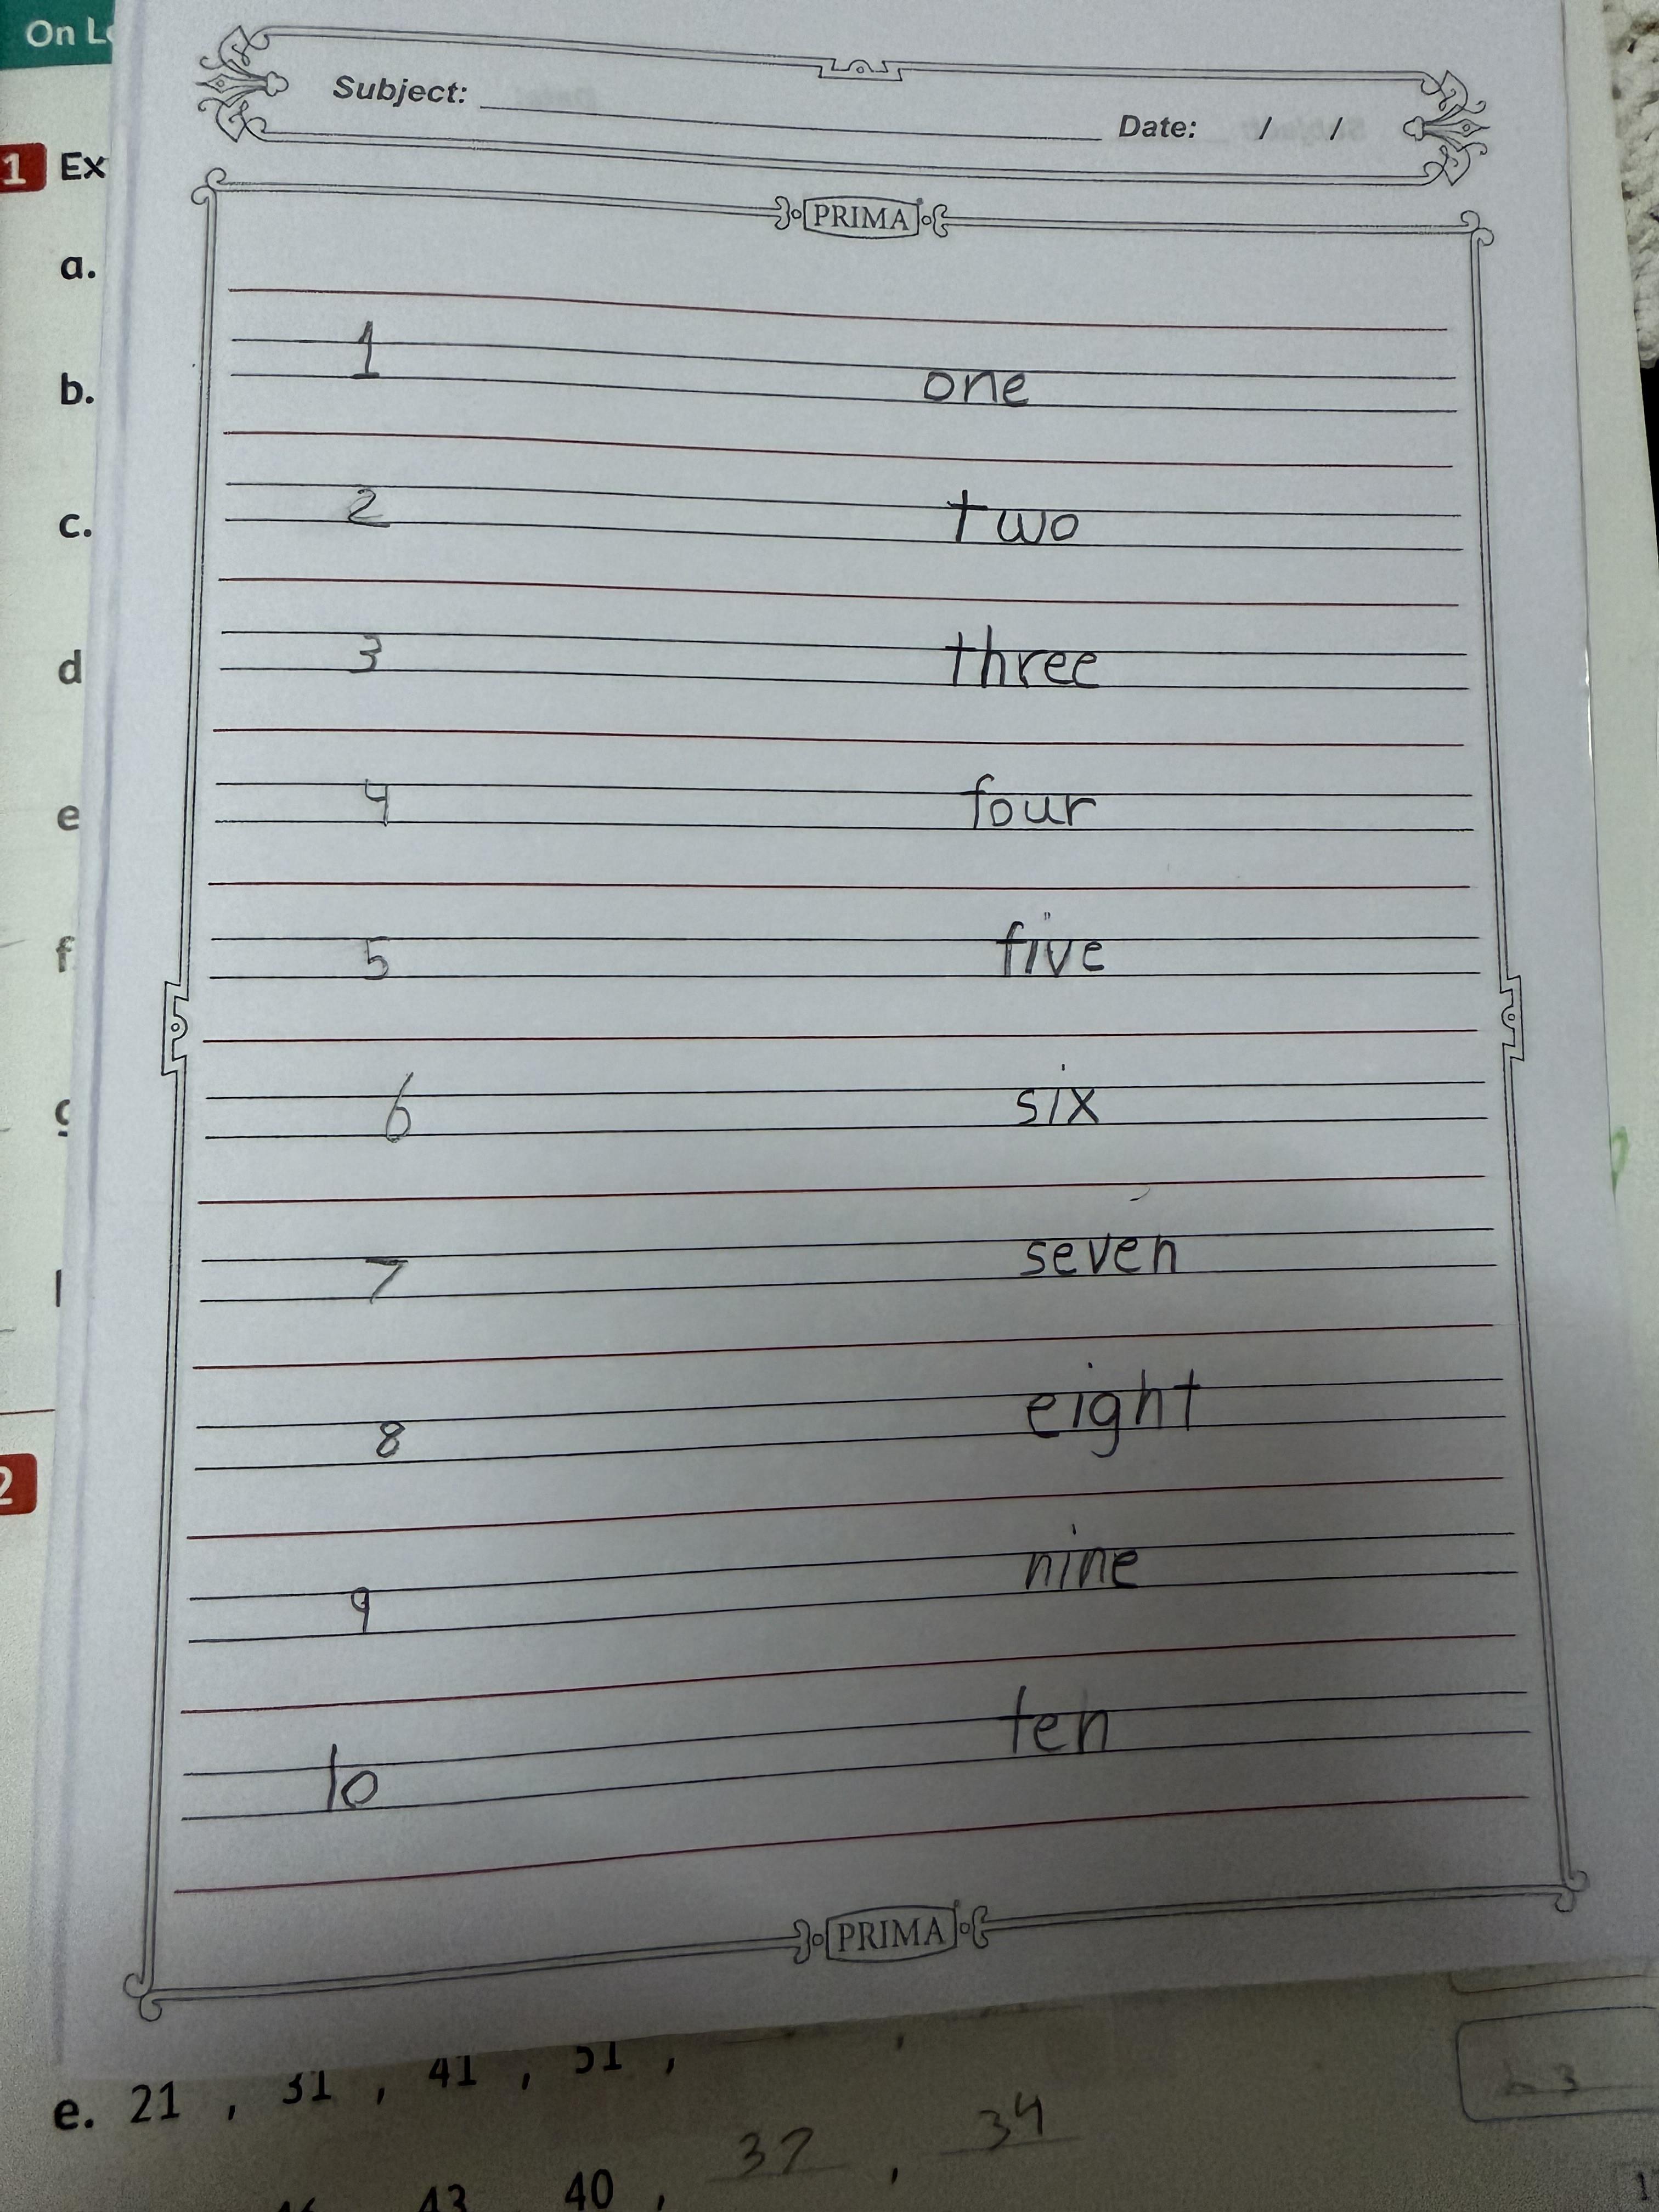 On L
Subject:
Date: / /
1 Ex
PRIMA
a.
1 one
b.
2 two
c.
3 three
d
4 four
e
5 five
f
6 six
7 seven
8 eight
2
9 nine
10 ten
PRIMA
e. 21 , 31 , 41 , 51 ,
43 40 , 37 , 34